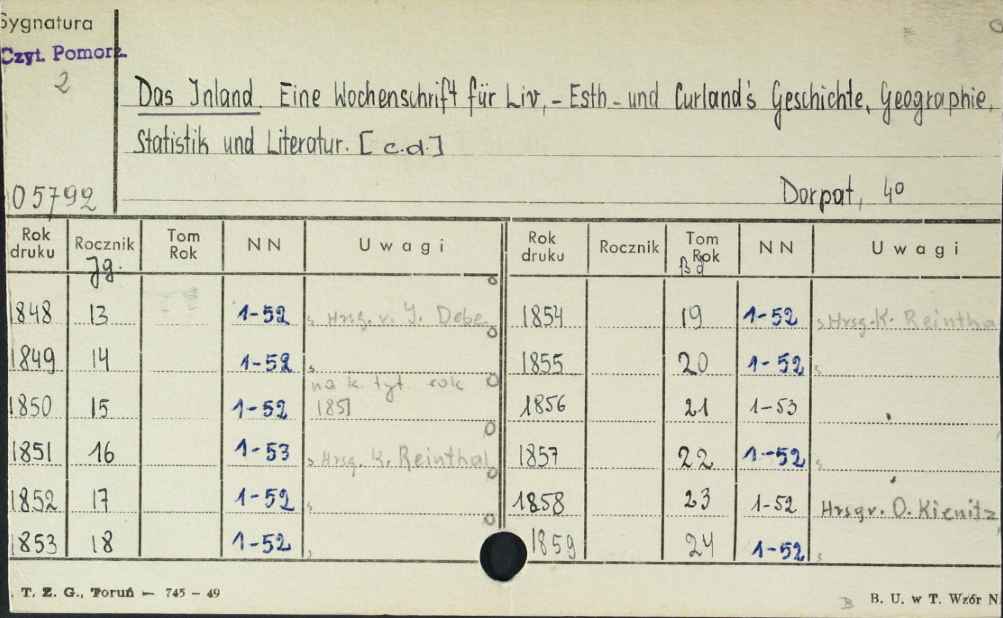 Sygnatura
Czyt. Pomorz.
2
Das Inland. Eine Wochenschrift für Liv,- Esth- und Curland's Geschichte, Geographie,
Statistik und Literatur. [c.d.]
05792
Dorpat, 4°
Rok druku Rocznik Tom Rok NN Uwagi Rok druku Rocznik Tom Rok NN Uwagi
Jg. Bd
1848 13 1-52 Hrsg. v. J. Debe 1854 19 1-52 Hrsg. K. Reintha
1849 14 1-52 1855 20 1-52
1850 15 1-52 na k. tyt. rok 1851 1856 21 1-53
1851 16 1-53 Hrsg. K. Reinthal 1857 22 1-52
1852 17 1-52 1858 23 1-52 Hrsgr. O. Kienitz
1853 18 1-52 1859 24 1-52
T. Z. G., Toruń — 745 - 49
B B. U. w T. Wzór N